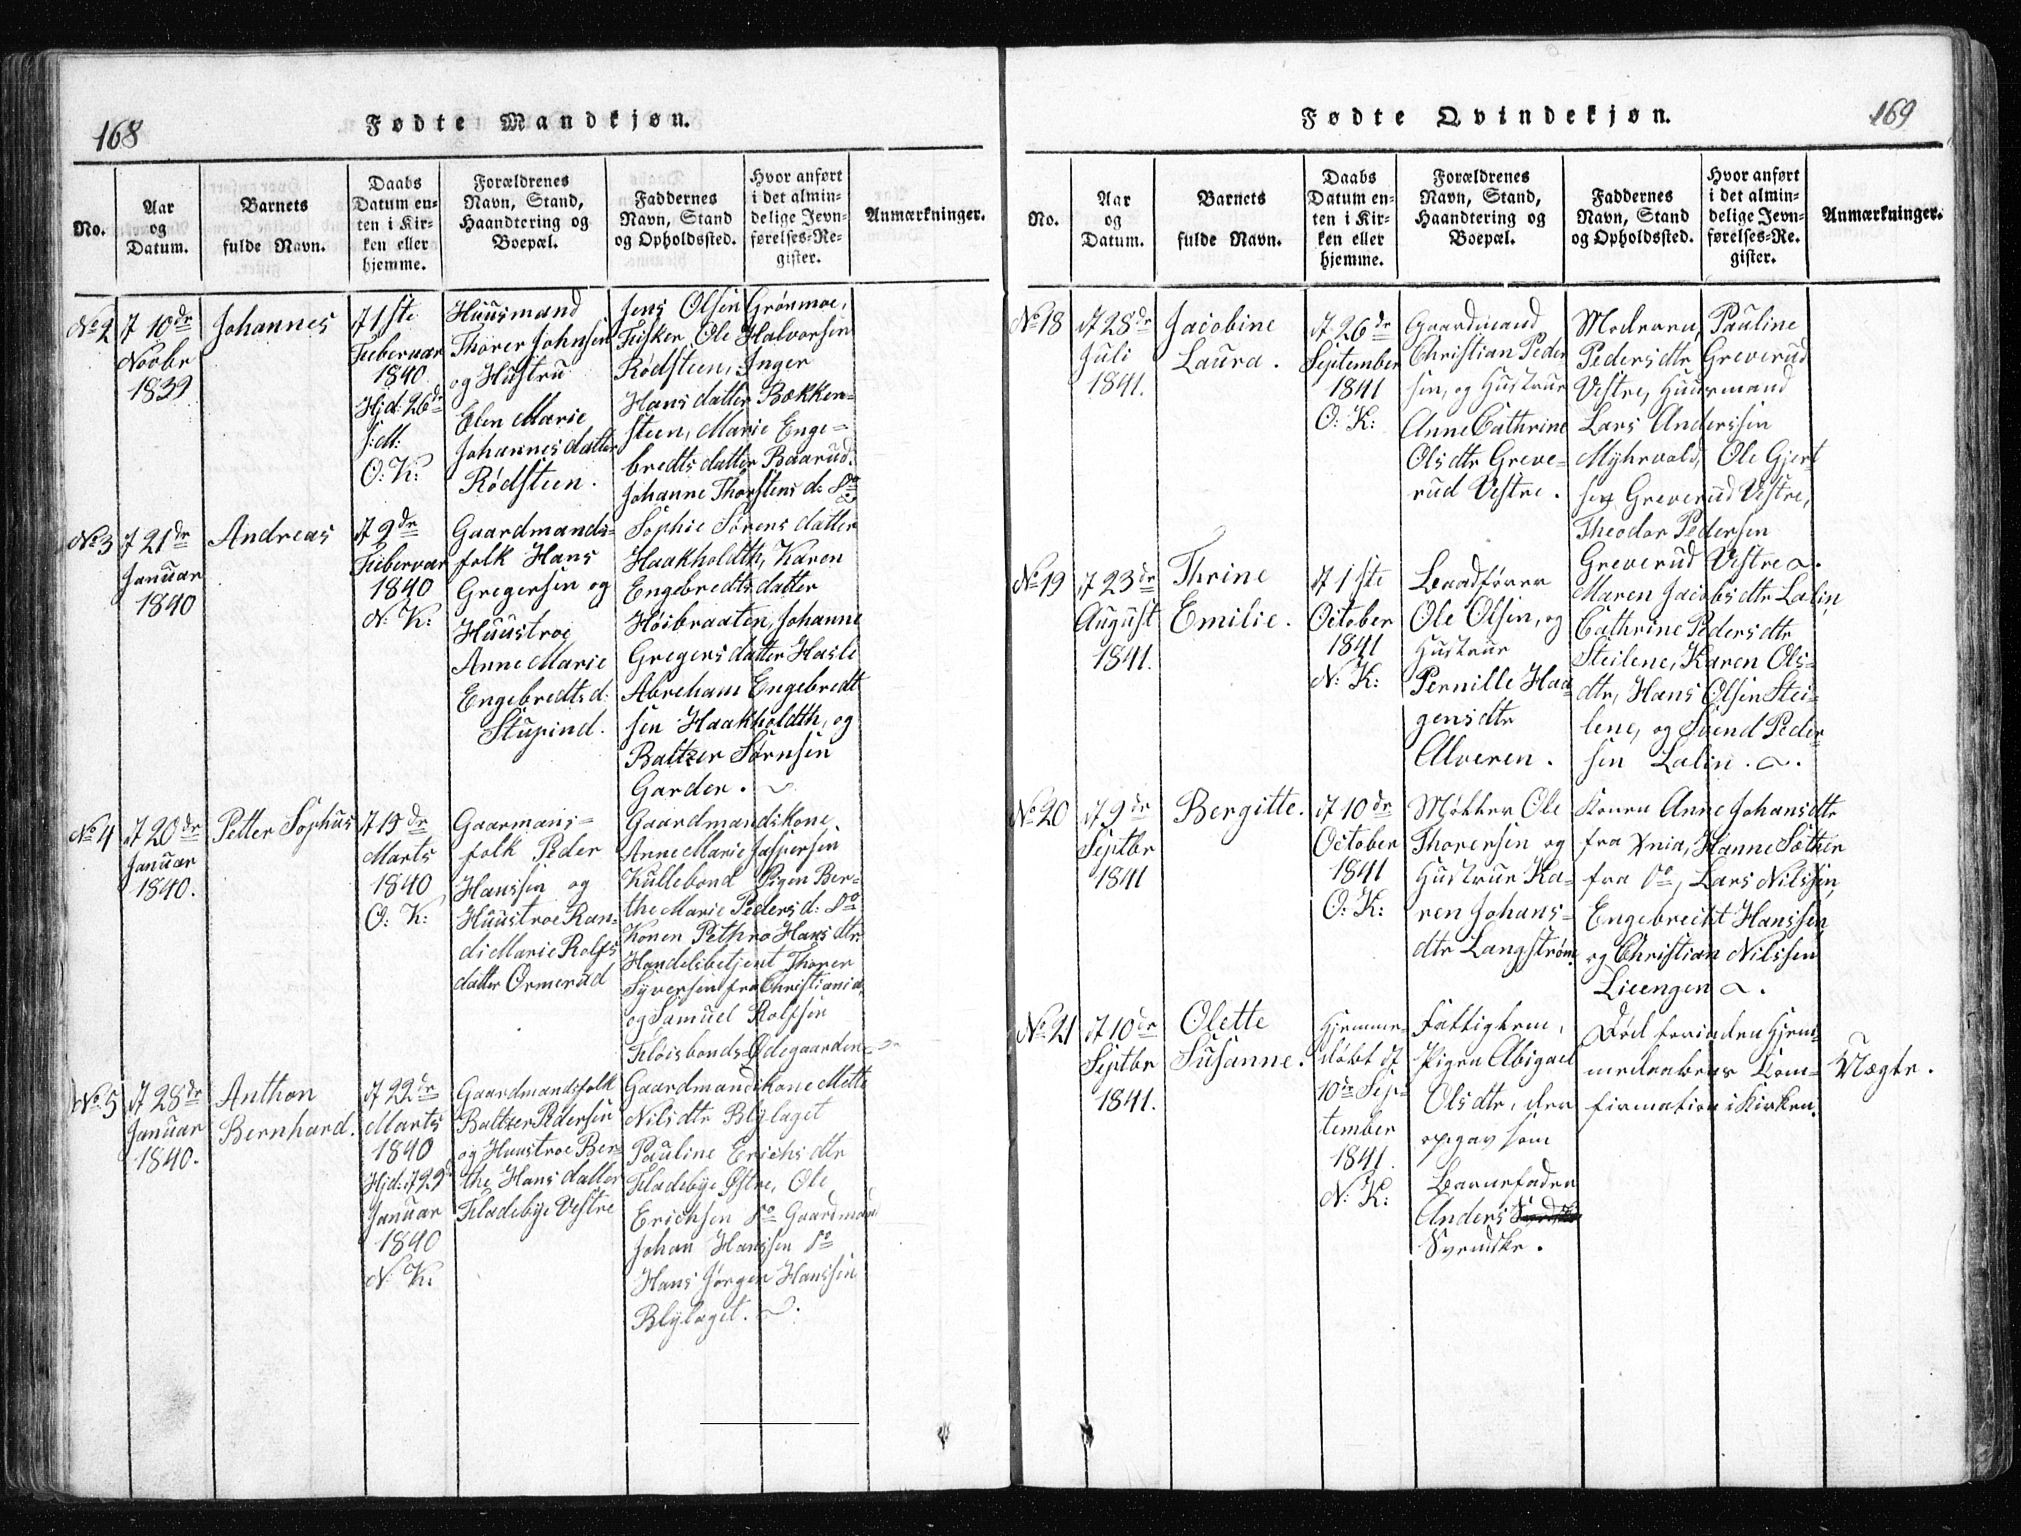 168
Fødte Mandkjøn.
No.
Aar
og
Datum.
Barnets
fulde Navn.
Daabs
Datum en-
ten i Kir-
ken eller
hjemme.
Forældrenes
Navn, Stand,
Haandtering og
Boepæl.
Faddernes
Navn, Stand
og Opholdssted.
Hvor anført
i det almin-
delige Jevn-
førelses-Re-
gister.
Anmærkninger.
No 2
d 10de
Novbr
1839
Johannes
d 1ste
Februar
1840
Hjd: 26de
s: M:
O: K:
Huusmand
Thorer Johnsen
og Hustru
Elen Marie
Johannesdatter
Rødsteen.
Jens Olsen Grønmoe,
Fisker Ole Halvorsen
Rødsteen, Inger
Hansdatter Bekken-
steen, Marie Enge-
bredtsdatter Baarud.
Johanne Thorstens d: Do
No 3
d 21de
Januar
1840
Andreas
d 9de
Februar
1840
N: K:
Gaardmands-
folk Hans
Gregersen og
Huustroe
Anne Marie
Engebredts d:
Stupind.
Sophie Sørensdatter
Haakholdth, Karen
Engebredtsdatter
Høibraaten, Johanne
Gregersdatter Hasle
Abreham Engebredt
sen Haakholdth, og
Baltzer Sørnsen
Garder.
No 4
d 20de
Januar
1840.
Petter Sophus
d 15de
Marts
1840
O: K:
Gaarmans-
folk Peder
Hanssen og
Huustroe Ran-
di Marie Rolfs
datter Ormerud
Gaardmandskone
Anne Marie Jaspersen
Kullebond Pigen Ber-
the Marie Peders d: Do
Konen Pethra Hans dtr
Handelsbetjent Thorer
Syversen fra Christiania
og Samuel Rolfsen
Fløisbonds-Ødegaarden
No 5
d 28de
Januar
1840.
Anthon
Bernhard.
d 22de
Marts
1840
Hjd: d 29d
Januar
1840
N: K:
Gaardmandsfolk
Baltzer Pedersen
og Huustroe Ber-
the Hansdatter
Fladebye Vestre
Gaardmandskone Mette
Nilsdtr Blylaget
Pauline Erichsdtr
Fladebye Østre, Ole
Erichsen Do Gaardmand
Johan Hanssen Do
Hans Jørgen Hanssen
Blylaget.
169
Fødte Qvindekjøn.
No.
Aar
og
Datum.
Barnets
fulde Navn.
Daabs
Datum en-
ten i Kir-
ken eller
hjemme.
Forældrenes
Navn, Stand,
Haandtering og
Boepæl.
Faddernes
Navn, Stand
og Opholdssted.
Hvor anført
i det almin-
delige Jevn-
førelses-Re-
gister.
Anmærkninger.
No 18
d 28de
Juli
1841.
Jacobine
Laura.
d 26de
September
1841
O: K:
Gaardmand
Christian Peder
sen, og Hustrue
Anne Cathrine
Olsdtr Greve-
rud Vestre.
Moderen, Pauline
Pedersdtr Greverud
Vestre, Huusmand
Lars Anderssen
Myhrvold, Ole Gjert
sen Greverud Vestre,
Theodor Pedersen
Greverud Vestre.
No 19
d 23de
August
1841.
Thrine
Emilie.
d 1ste
October
1841
N: K:
Baadfører
Ole Olsen, og
Hustrue
Pernille Haa-
gensdtr
Alveren.
Maren Jacobsdtr Lalin,
Cathrine Pedersdtr
Steilene, Karen Ols-
dtr, Hans Olsen Stei-
lene, og Svend Peder-
sen Lalin.
No 20
d 9de
Septbr
1841
Bergitte.
d 10de
October
1841
O: K:
Møkker Ole
Thorersen og
Hustrue Ka-
ren Johans-
dtr Langstrøm.
Konen Anne Johansdtr
fra Xnia, Hanne Sæther
fra Do, Lars Nilssen,
Engebrecht Hanssen,
og Christian Nilssen
Lieengen.
No 21
d 10de
Septbr
1841.
Olette
Susanne.
Hjemme-
døbt d
10de Sep-
tember
1841.
N: K:
Fattiglem,
Pigen Abigael
Olsdtr, der
opgav som
Barnefader
Anders
Svendske.
Død forinden Hjem-
medaabens Kom-
firmation i Kirken.
Uægte.